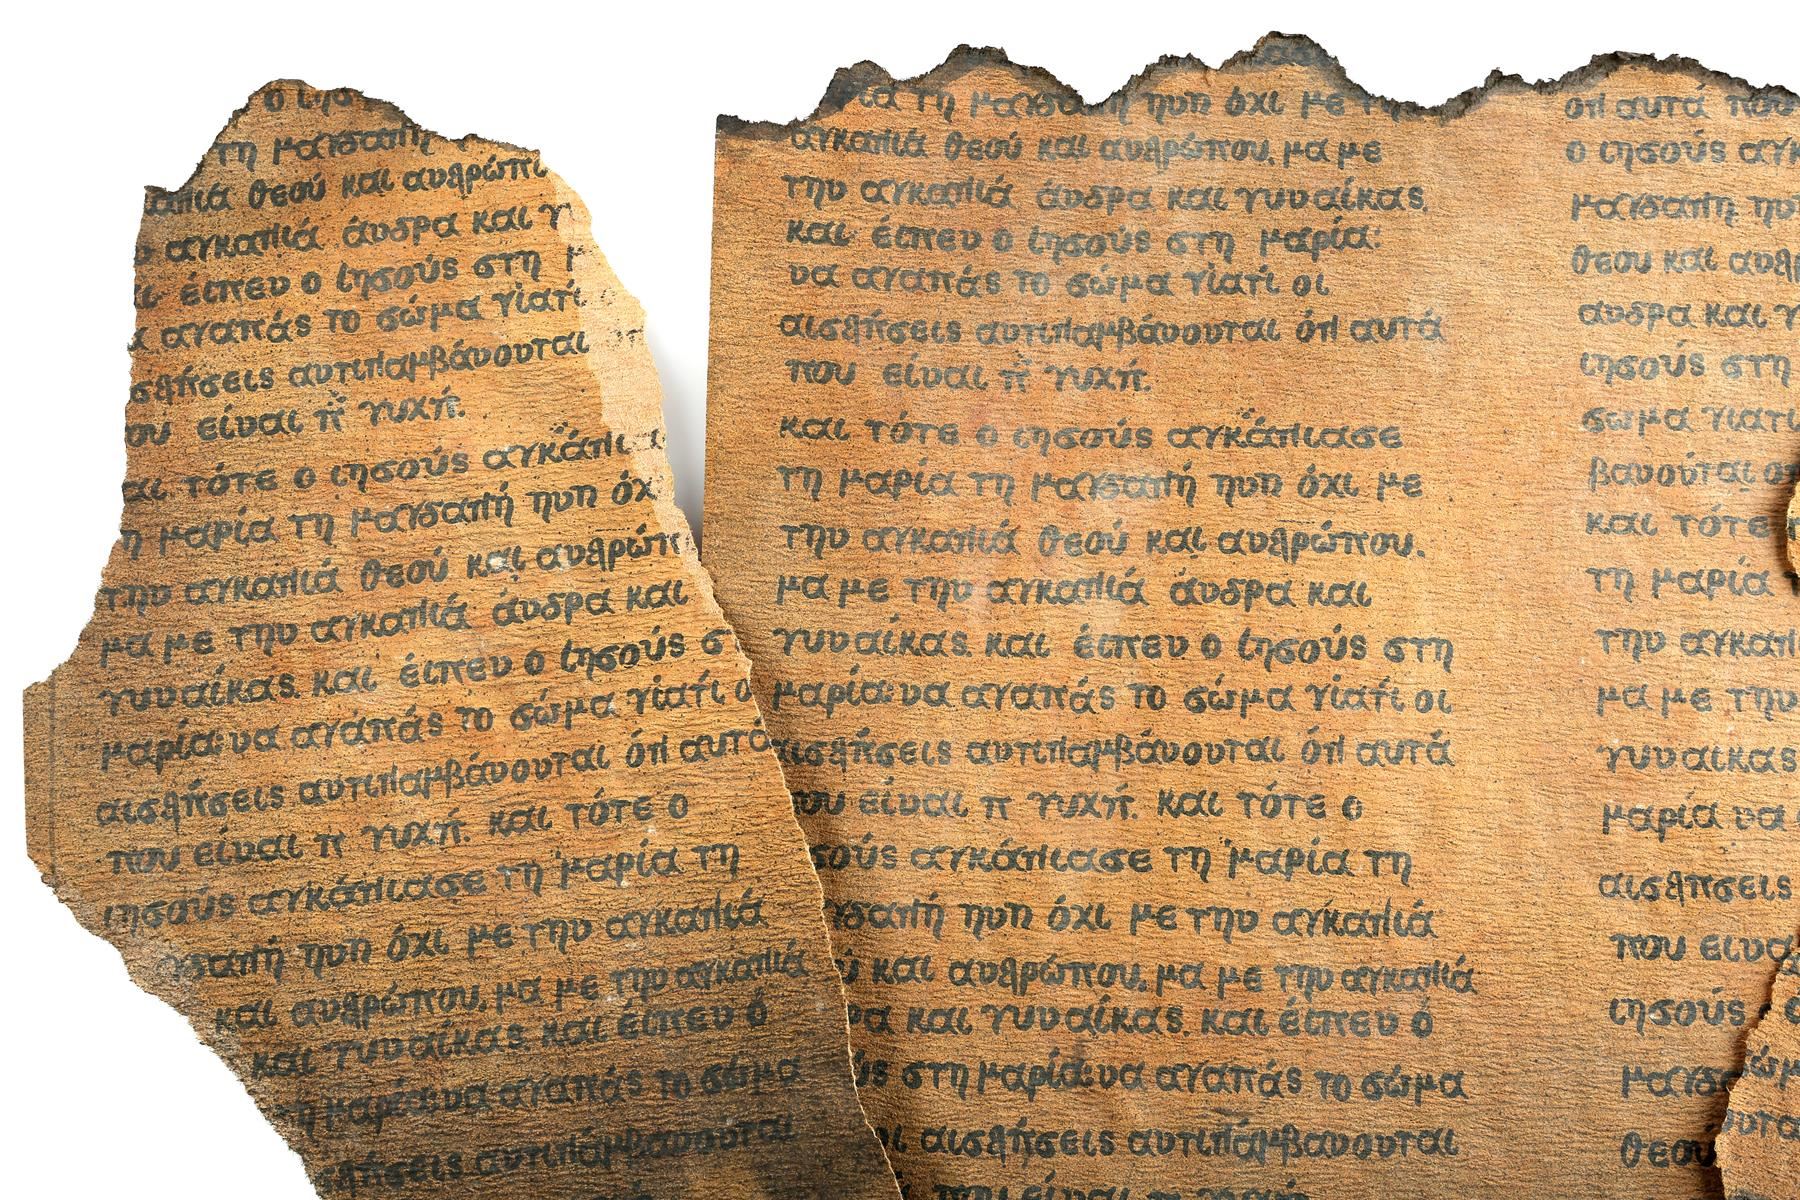 ο ιησ
τη μαγδαλη
αλιά θεού και ανθρώπ
αγκαλιά άνδρα και γ
είπεν ο ιησούς στη μ
αγαπάς το σώμα γιατί
σθήσεις αντιλαμβάνονται
ου είναι η ψυχή.
αι τότε ο ιησούς αγκάλι
η μαρία τη μαγδαλή ηνη όχ
την αγκαλιά θεού και ανθρώπ
μα με την αγκαλιά άνδρα και
γυναίκας. και είπεν ο ιησούς σ
μαρία: να αγαπάς το σώμα γιατί ο
αισθήσεις αντιλαμβάνονται ότι αυτά
που είναι η ψυχή. και τότε ο
ιησούς αγκάλιασε τη μαρία τη
γδαλή ηνη όχι με την αγκαλιά
και ανθρώπου, μα με την αγκαλιά
και γυναίκας. και είπεν ό
τη μαρία: να αγαπάς το σώμα
σθήσεις αντιλαμβάνονται
ία τη μαγδα ή ηνη όχι με τη
αγκαλιά θεού και ανθρώπου, μα με
την αγκαλιά άνδρα και γυναίκας.
και είπεν ο ιησούς στη μαρία:
να αγαπάς το σώμα γιατί οι
αισθήσεις αντιλαμβάνονται ότι αυτά
που είναι η ψυχή.
και τότε ο ιησούς αγκάλιασε
τη μαρία τη μαγδαλή ηνη όχι με
την αγκαλιά θεού και ανθρώπου.
μα με την αγκαλιά άνδρα και
γυναίκας. και είπεν ο ιησούς στη
μαρία: να αγαπάς το σώμα γιατί οι
αισθήσεις αντιλαμβάνονται ότι αυτά
που είναι η ψυχή. και τότε ο
σούς αγκάλιασε τη μαρία τη
γδαλή ηνη όχι με την αγκαλιά
ύ και ανθρώπου, μα με την αγκαλιά
ρα και γυναίκας. και είπεν ό
ύς στη μαρία: να αγαπάς το σώμα
ι αισθήσεις αντιλαμβάνονται
που είναι η ψυχή
ότι αυτά που
ο ιησούς αγκ
μαγδαλη ην
θεου και ανθρ
ανδρα και γ
ιησούς στη
σωμα γιατι
βανούται οτ
και τότε
τη μαρία
την αγκαλι
μα με την
γυναικας
μαρία να
αισθησεις
που ειναι
ιησούς
μαγδα
θεού